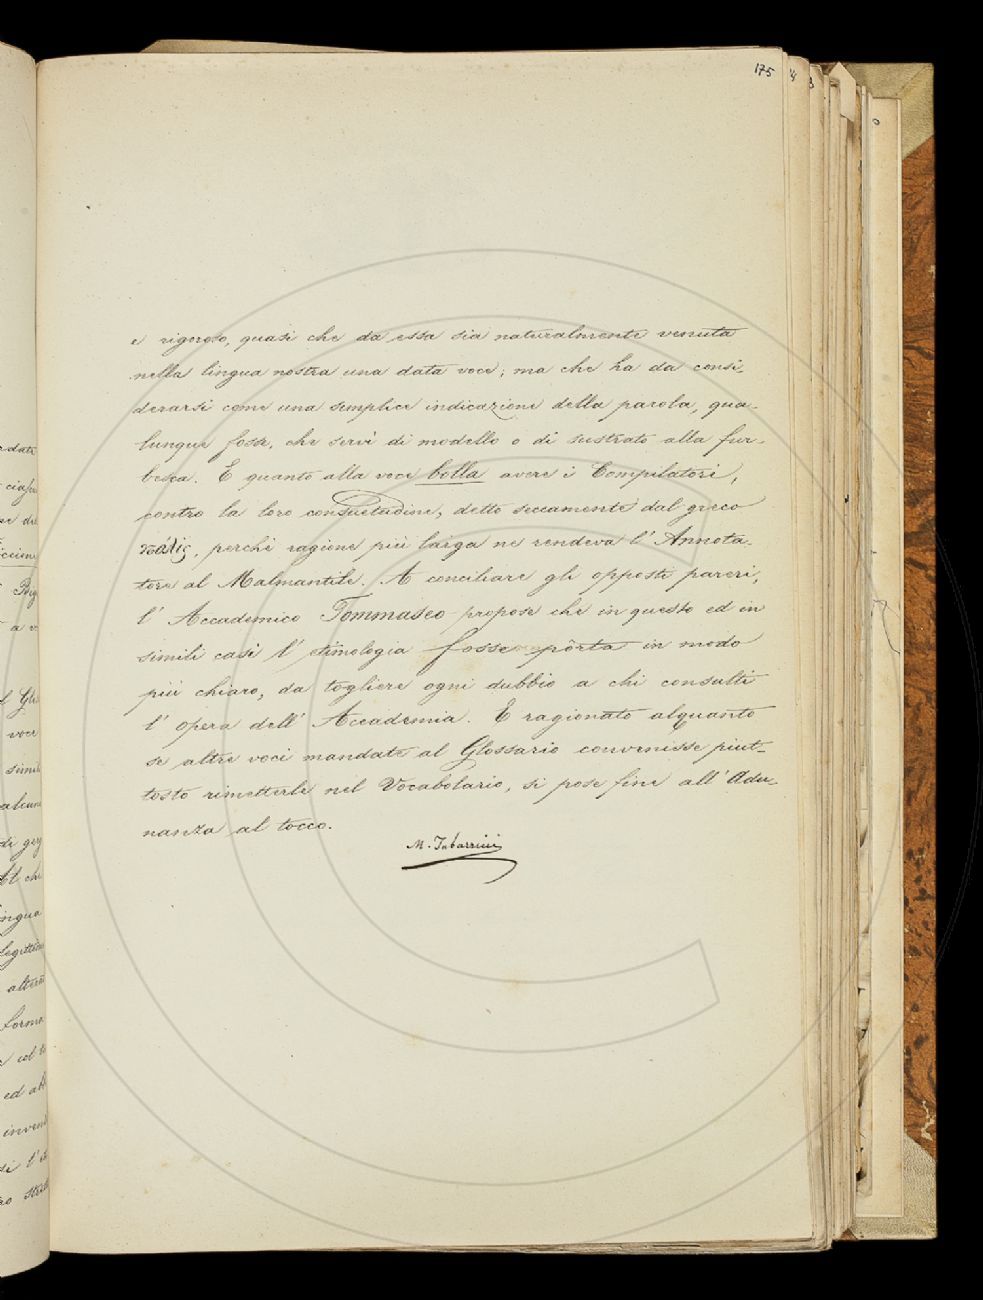 175
e rigoroso, quasi che da essa sia naturalmente venuta
nella lingua nostra una data voce; ma che ha da consi-
derarsi come una semplice indicazione della parola, qua-
lunque fosse, che servì di modello o di sustrato alla fur-
besca. E quanto alla voce bolla avere i Compilatori,
contro la loro consuetudine, detto seccamente dal greco
πόλις, perchè ragione più larga ne rendeva l'Annota-
tore al Malmantile. A conciliare gli opposti pareri,
l'Accademico Tommaseo propose che in questo ed in
simili casi l'etimologia fosse pòrta in modo
più chiaro, da togliere ogni dubbio a chi consulti
l'opera dell'Accademia. E ragionato alquanto
se altre voci mandate al Glossario convenisse piut-
tosto rimetterle nel Vocabolario, si pose fine all'Adu-
nanza al tocco.
M. Tabarrini